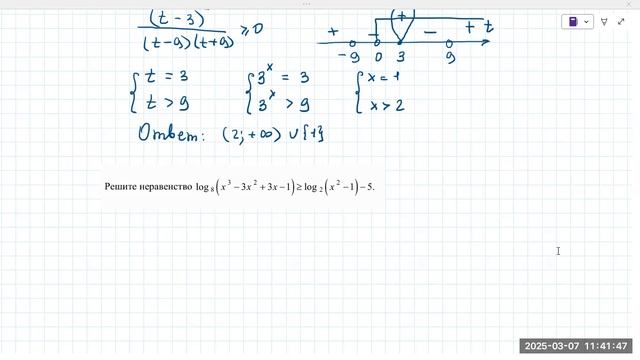 (t-3)
(t-9)(t+9) ≥ 0
+ - (+) - + t
-9 0 3 9
{ t = 3 { 3^x = 3 { x = 1
{ t > 9 { 3^x > 9 { x > 2
Ответ: (2; +∞) ∪ {1}
Решите неравенство log₈(x³ − 3x² + 3x − 1) ≥ log₂(x² − 1) − 5.
2025-03-07 11:41:47